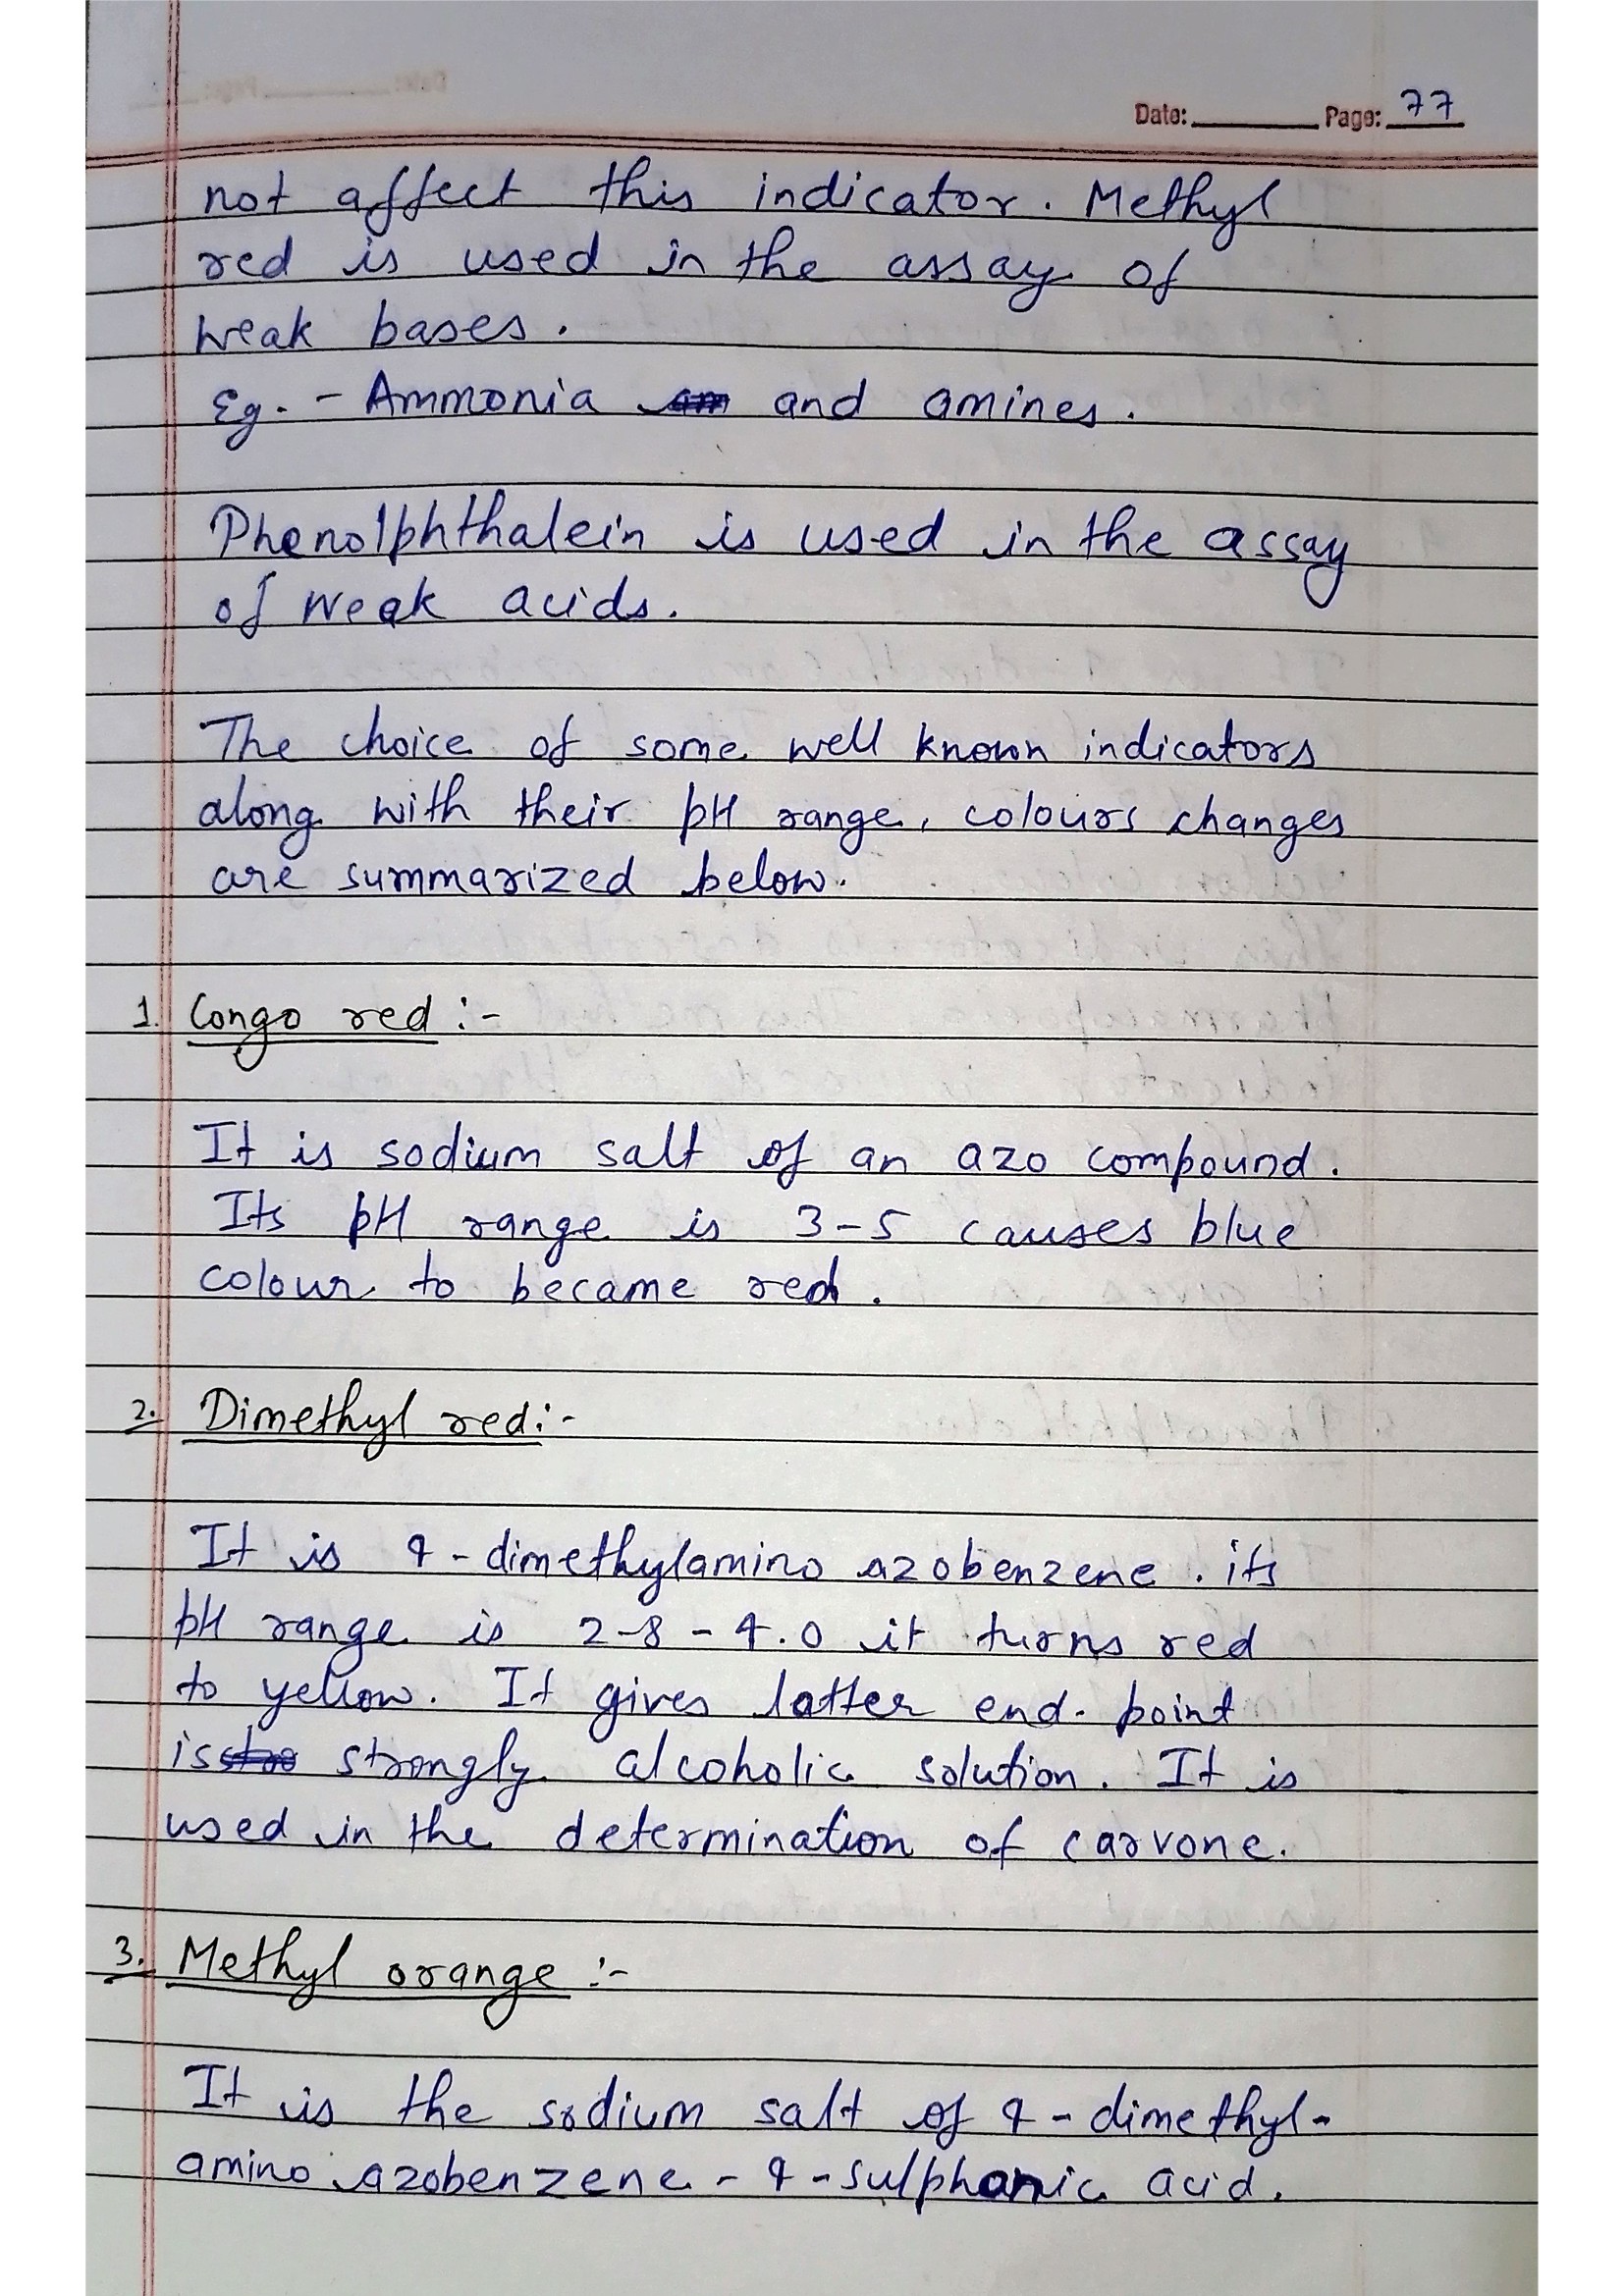 Date: Page: 77
not affect this indicator. Methyl
red is used in the assay of
weak bases.
Eg. - Ammonia and amines.
Phenolphthalein is used in the assay
of weak acids.
The choice of some well known indicators
along with their pH range, colours changes
are summarized below.
1. Congo red :-
It is sodium salt of an azo compound.
Its pH range is 3-5 causes blue
colour to became red.
2. Dimethyl red :-
It is 4-dimethylamino azobenzene. its
pH range is 2-8 - 4.0 it turns red
to yellow. It gives latter end-point
is strongly alcoholic solution. It is
used in the determination of carvone.
3. Methyl orange :-
It is the sodium salt of 4-dimethyl-
amino azobenzene - 4-sulphonic acid.